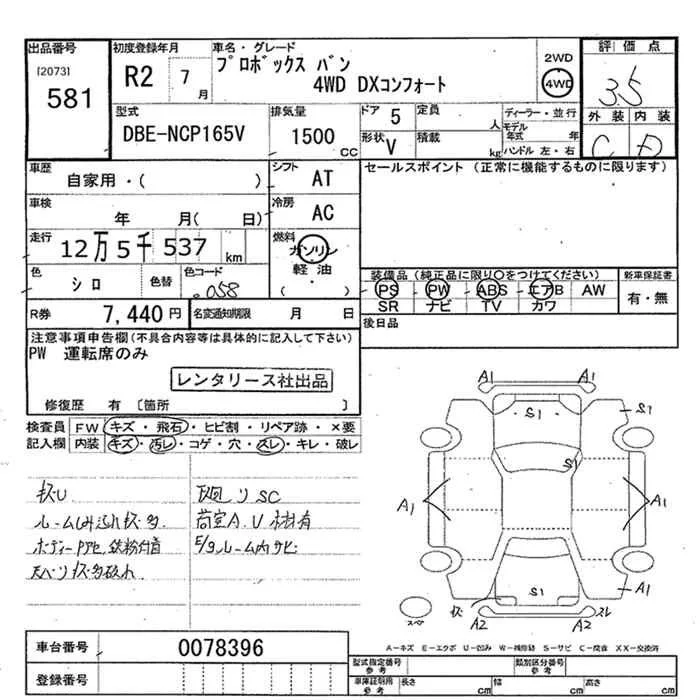 出品番号
[2073]
581
初度登録年月
R2 7月
車名・グレード
プロボックス バン
4WD DXコンフォート
2WD
4WD
評価点
3.5
外装 内装
C D
型式
DBE-NCP165V
排気量
1500 CC
ドア 5
形状 V
定員 人
積載 kg
ディーラー・並行
モデル年式 年
ハンドル 左・右
車歴
自家用・( )
シフト AT
セールスポイント (正常に機能するものに限ります)
車検
年 月( 日)
冷房 AC
走行
12万5千537 km
燃料
ガソリン
軽油
( )
色
シロ
色替
色コード
058
装備品(純正品に限り○をつけてください)
PS PW ABS エアB AW
SR ナビ TV カワ
新車保証書
有・無
R券 7,440円
名変通知期限 月 日
後日品
注意事項申告欄(不具合内容等は具体的に記入して下さい)
PW 運転席のみ
レンタリース社出品
修復歴 有 〔箇所 〕
検査員記入欄
FW キズ・飛石・ヒビ割・リペア跡・×要
内装 キズ・汚レ・コゲ・穴・スレ・キレ・破レ
キズU
ルーム
キズ多
ボディーPアセ 鉄粉付着
SC
荷室A.U
E/gルーム内サビ
A1 A1
S1 S1
S1
A1 A1
S1 A1
キズ スレ
A2 A2
スペ
A-キズ E-エクボ U-凹み W-補修跡 S-サビ C-腐食 XX-交換済
車台番号 0078396
登録番号
型式指定番号 参考
類別区分番号 参考
車庫証明用 参考
長さ cm 幅 cm 高さ cm